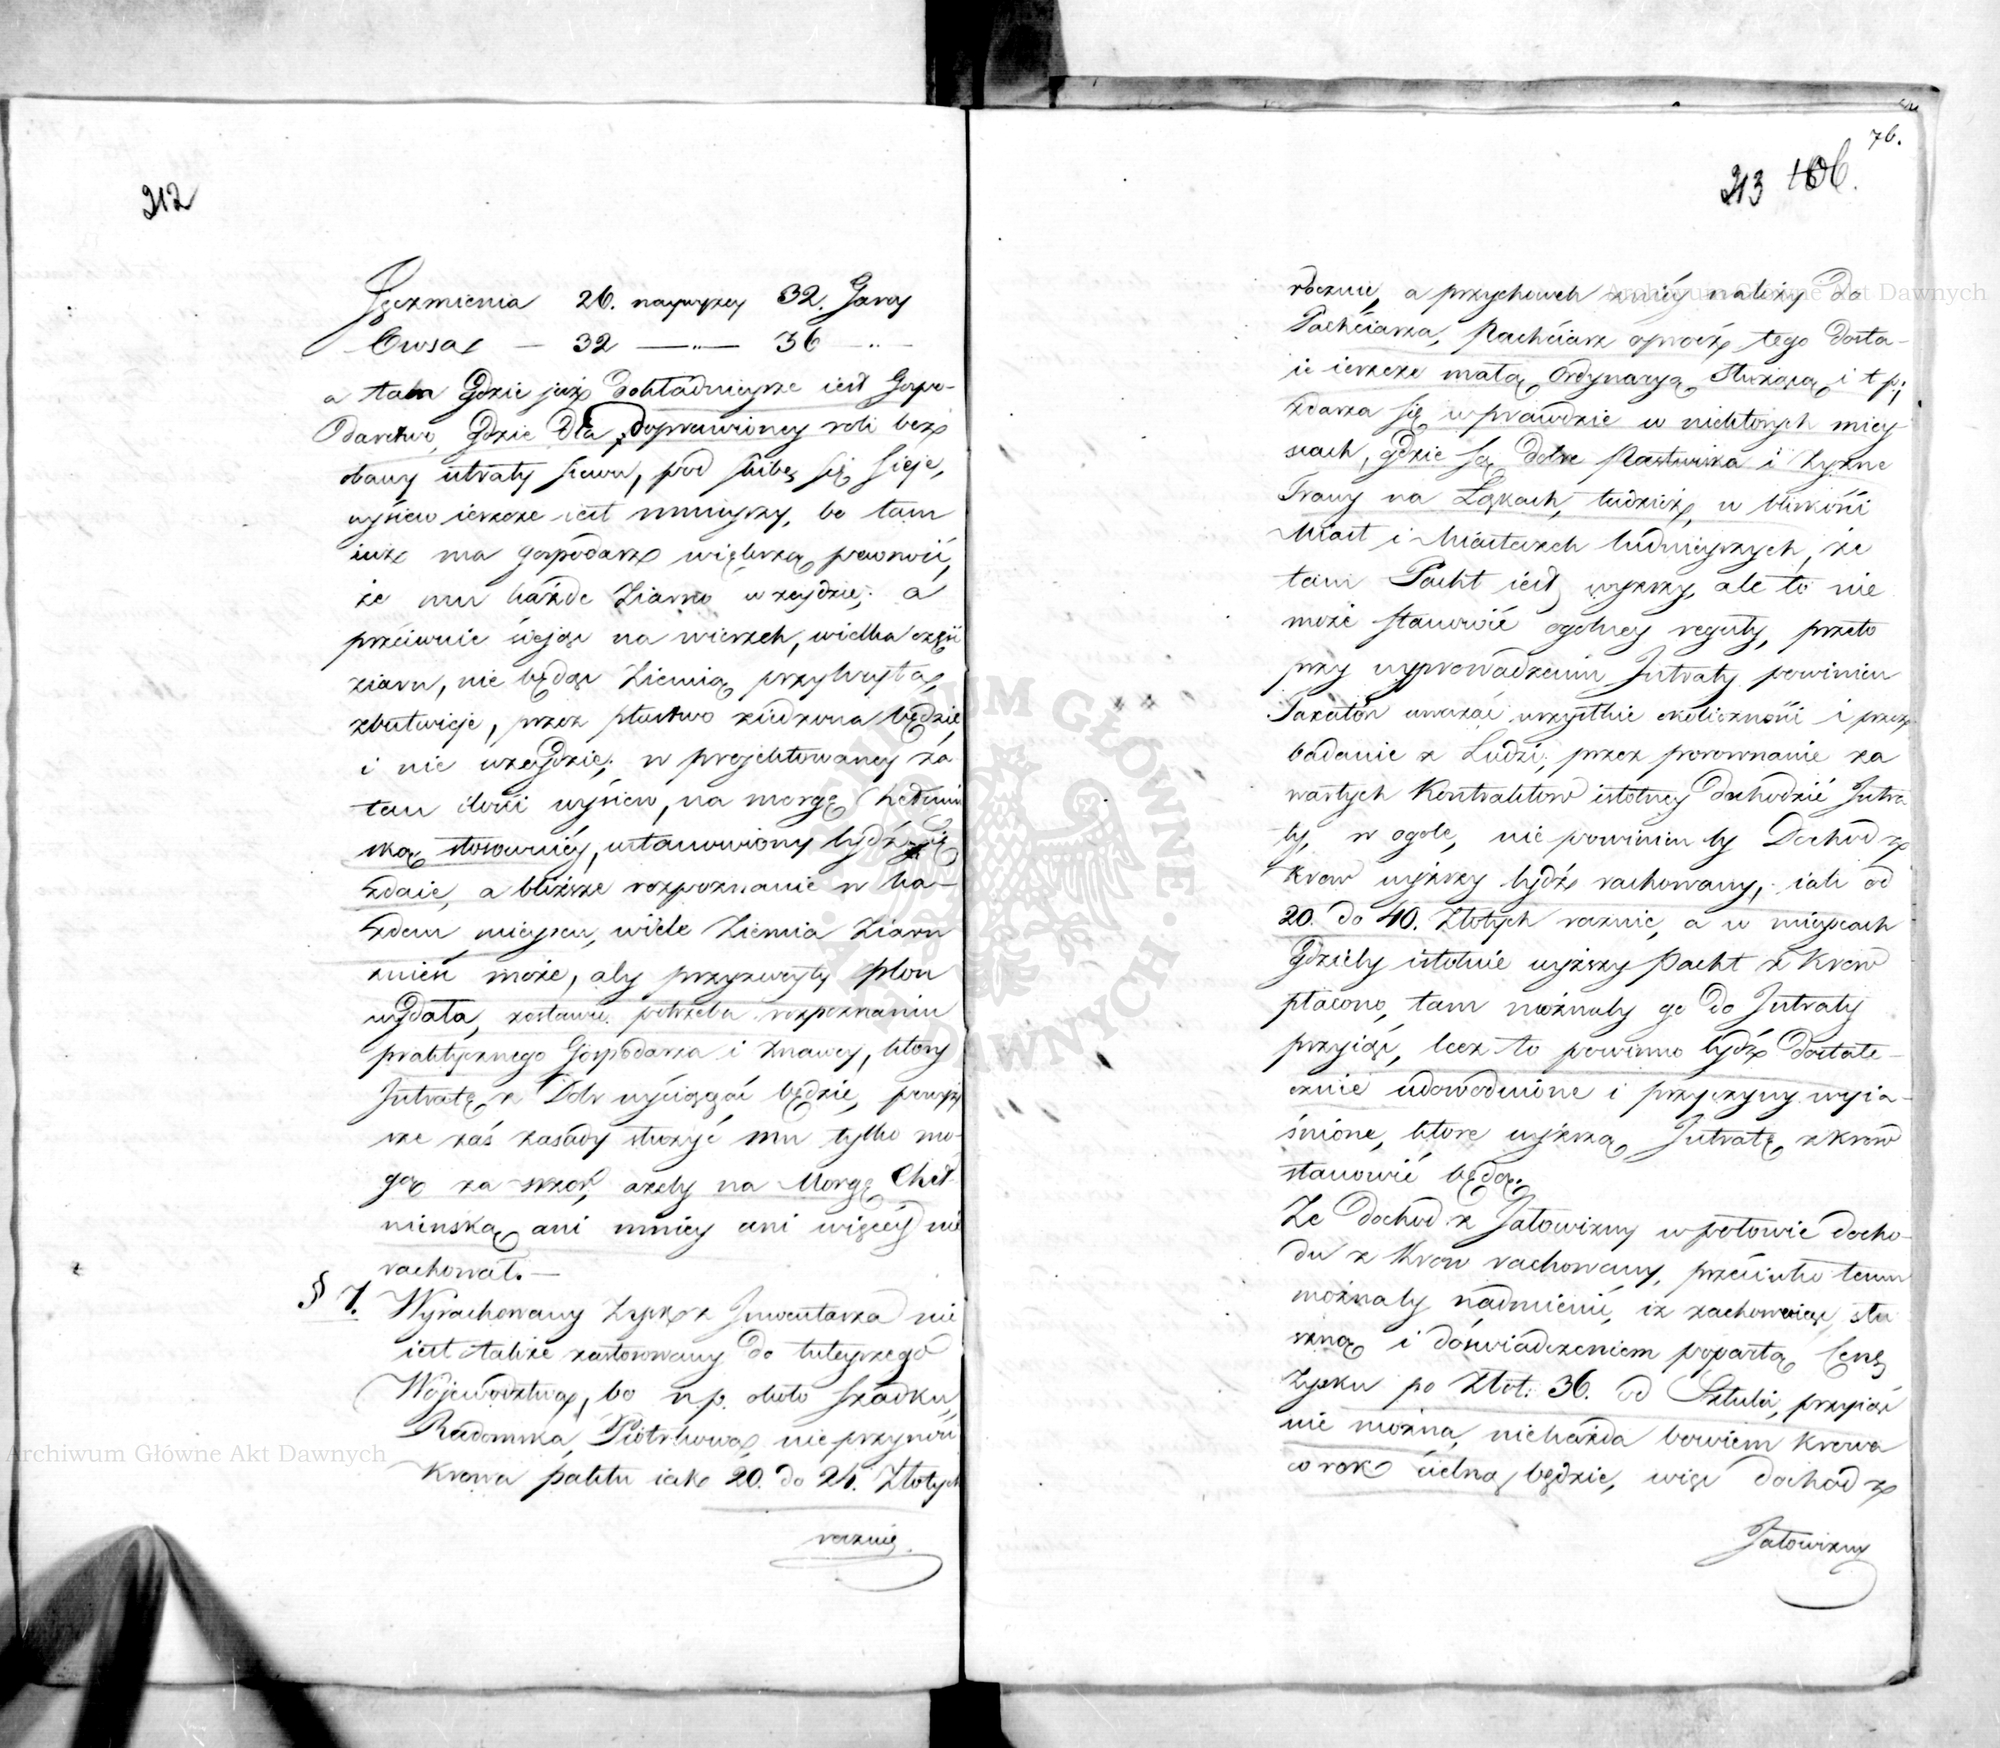 212
Jęczmienia 26. naywyzey 32. Garcy
Owsa — 32 —„— 36 —„—
a tam Gdzie już dokładnieysze iest Gospo-
darstwo, gdzie dla doprawioney roli bez
obawy utraty siewu, pod skibę się sieje,
wysiew ieszcze iest mnieyszy, bo tam
iuż ma gospodarz większą pewność,
że mu każde Ziarno wzeydzie; a
przeciwnie siejąc na wierzch, wielka część
ziarn, nie będąc Ziemią przykryta,
zbutwieje, przez ptastwo ziedzona będzie,
i nie wzeydzie; w projektowaney za
tem ilości wysiew, na morgę Chełmiń
ską stosowniey, ustanowiony bydź się
zdaie, a bliższe rozpoznanie w ka-
żdem mieyscu, wiele Ziemia Ziarn
znieść może, aby przyzwoity plon
wydała, zostawić potrzeba rozpoznaniu
praktycznego Gospodarza i znawcy, który
Intratę z Dobr wyciągać będzie, powyż
sze zaś zasady służyć mu tylko mo-
gą za wzór, ażeby na Morgę Cheł-
mińską ani mniey ani więcéy nie
rachował. —
§ 7. Wyrachowany Zysk z Inwentarza nie
iest także zastosowany do tuteyszego
Województwa, bo n.p. około Szadku,
Radomska, Piotrkowa, nie przynosi
Krowa paktu iak 20. do 24. Złotych
rocznie.
76.
213 106.
rocznie, a przychowek z niéy należy do
Pachciarza, Pachciarz oprócz tego dosta-
ie ieszcze małą Ordynaryą służącą i t p;
Zdarza się wprawdzie w niektórych miey-
scach, gdzie są dobre Pastwiska i żyzne
Trawy na Łąkach, tudzież, w bliskości
Miast i Miasteczek ludnieyszych, że
tam Pacht iest wyższy, ale to nie
może stanowić ogolney reguły, przeto
przy wyprowadzeniu Intraty powinien
Taxator uważać wszystkie okoliczności i przez
badanie z Ludzi, przez porownanie za
wartych Kontraktow istotney dochodzić Intra
ty, w ogole, nie powinien by Dochod z
Krow wyższy bydź rachowany, iak od
20. do 40. Złotych rocznie, a w mieyscach
Gdzieby istotnie wyższy Pacht z Krow
płacono, tam możnaby go do Intraty
przyiąć, lecz to powinno bydź dostate-
cznie udowodnione i przyczyny wyia-
śnione, które wyższą Intratę z Krow
stanowić będą.
Ze dochod z Jałowizny w połowie docho-
du z Krow rachowany, przeciwko temu
możnaby nadmienić, iż zachowując słu
szną i doświadczeniem popartą Cenę
Zysku po Złot: 36. od Sztuki, przyiąć
nie można, niekażda bowiem Krowa
co rok cielną będzie, więc dochód z
Jałowizny